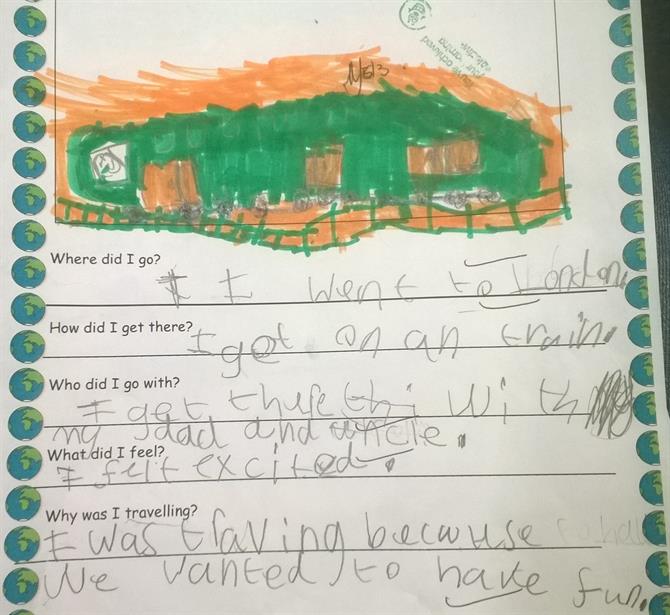 Where did I go?
I I went to London.
How did I get there?
I get on an train.
Who did I go with?
I get thure thi with
my dad and uncle.
What did I feel?
I felt excited.
Why was I travelling?
I was traving becwuse
We wanted to have fun.